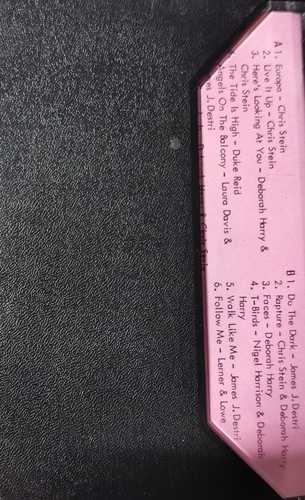 A 1. Europa - Chris Stein
2. Live It Up - Chris Stein
3. Here's Looking At You - Deborah Harry &
Chris Stein
The Tide Is High - Duke Reid
Angels On The Balcony - Laura Davis &
es J. Destri
B 1. Do The Dark - James J. Destri
2. Rapture - Chris Stein & Deborah Harry
3. Faces - Deborah Harry
4. T-Birds - Nigel Harrison & Deborah
Harry
5. Walk Like Me - James J. Destri
6. Follow Me - Lerner & Lowe